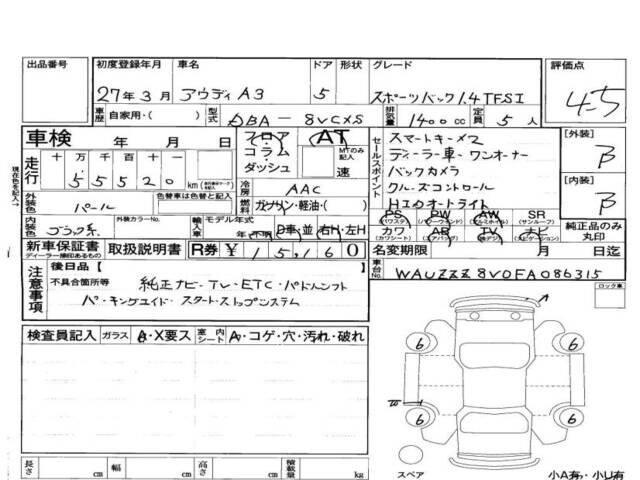 出品番号 初度登録年月 車名 ドア 形状 グレード 評価点
27年3月 アウディA3 5 スポーツバック1.4TFSI 4.5
車歴 自家用・( ) 型式 DBA-8VCXS 排気量 1400cc 定員 5人
車検 年 月 日 フロア コラム ダッシュ AT MTのみ記入 速
走行 十 万 千 百 十 km
5 5 5 2 0
外装色 パール 色替車は色替と記入 冷房 AAC
燃料 ガソリン・軽油・( )
内装色 ブラック系 外装カラーNo. 輸入車 モデル年式 年・不明 D車・並 右H・左H
現在色を記入→
セールスポイント
スマートキーメモ
ディーラー車・ワンオーナー
バックカメラ
クルーズコントロール
HIDオートライト
PS (パワステ) PW (パワーウィンド) AW (アルミホイル) SR (サンルーフ)
カワ (カワシート) AR (エアバッグ) TV ナビ (ナビゲーション) 純正品のみ丸印
[外装] B
[内装] B
新車保証書 ディーラー捺印あるもの 取扱説明書 R券 ¥ 15,160 名変期限 月 日迄
車台No. WAUZZZ8V0FA086315
注意事項 後日品( )
不具合箇所等 純正ナビ・TV・ETC・パドルシフト
パーキングエイド・スタートストップシステム
ロック車
検査員記入 ガラス A・X要ス 室内シート A・コゲ・穴・汚れ・破れ
6 6
6 6
長さ cm 幅 cm 高さ cm 積載量 kg
スペア 小A有・小U有